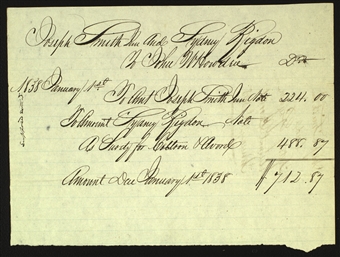 Joseph Smith Jun And Sydney Rigdon
To John W Howden Dr
1838 January 1st To Amt Joseph Smith Jun Note 224.00
To Amount Sydney Rigdon Note
As Surety for 488.87
Amount Due January 1st 1838 $712.87